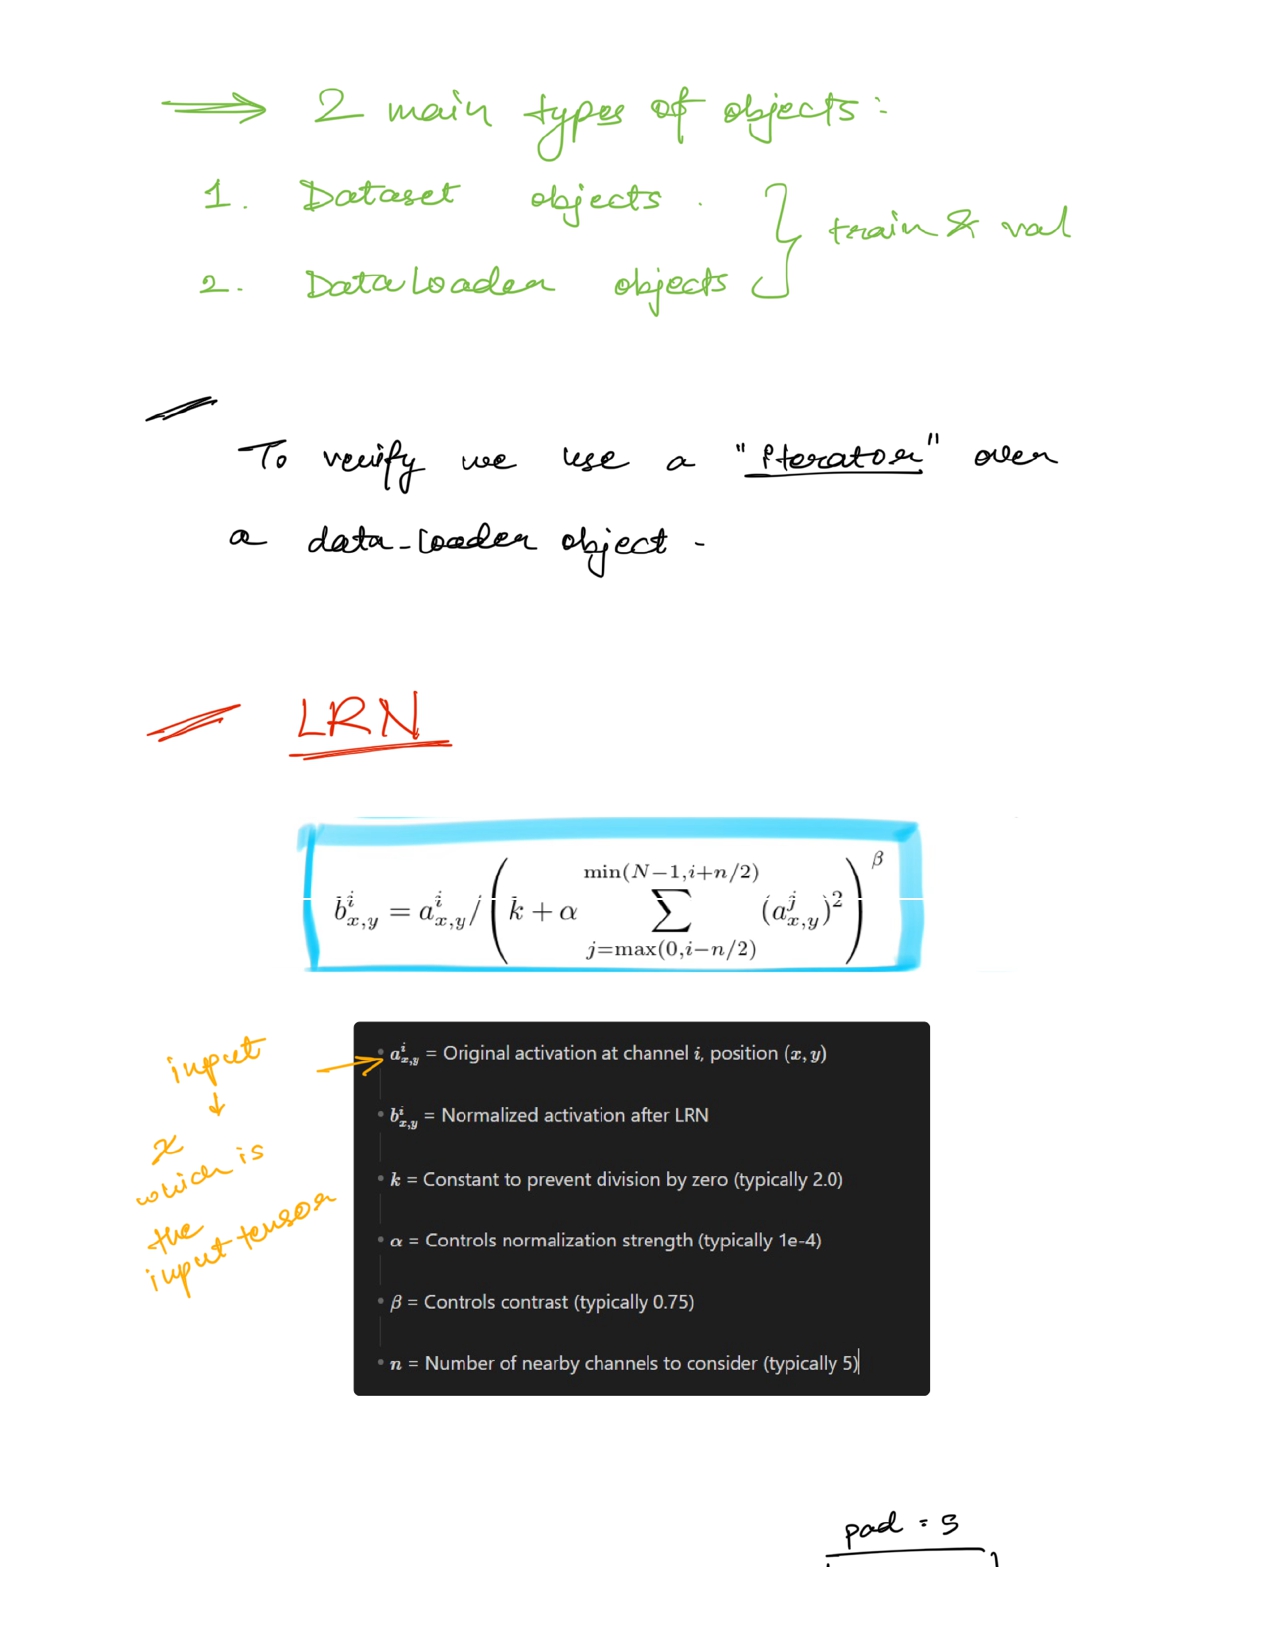 ⟹ 2 main types of objects:
1. Dataset objects.
2. DataLoader objects } train & val
To verify we use a "iterator" over
a data-loader object -
LRN
b^i_{x,y} = a^i_{x,y} / ( k + α ∑_{j=max(0,i−n/2)}^{min(N−1,i+n/2)} (a^j_{x,y})^2 )^β
input
↓
x
which is
the
input tensor
• a^i_{x,y} = Original activation at channel i, position (x, y)
• b^i_{x,y} = Normalized activation after LRN
• k = Constant to prevent division by zero (typically 2.0)
• α = Controls normalization strength (typically 1e-4)
• β = Controls contrast (typically 0.75)
• n = Number of nearby channels to consider (typically 5)
pad = 5